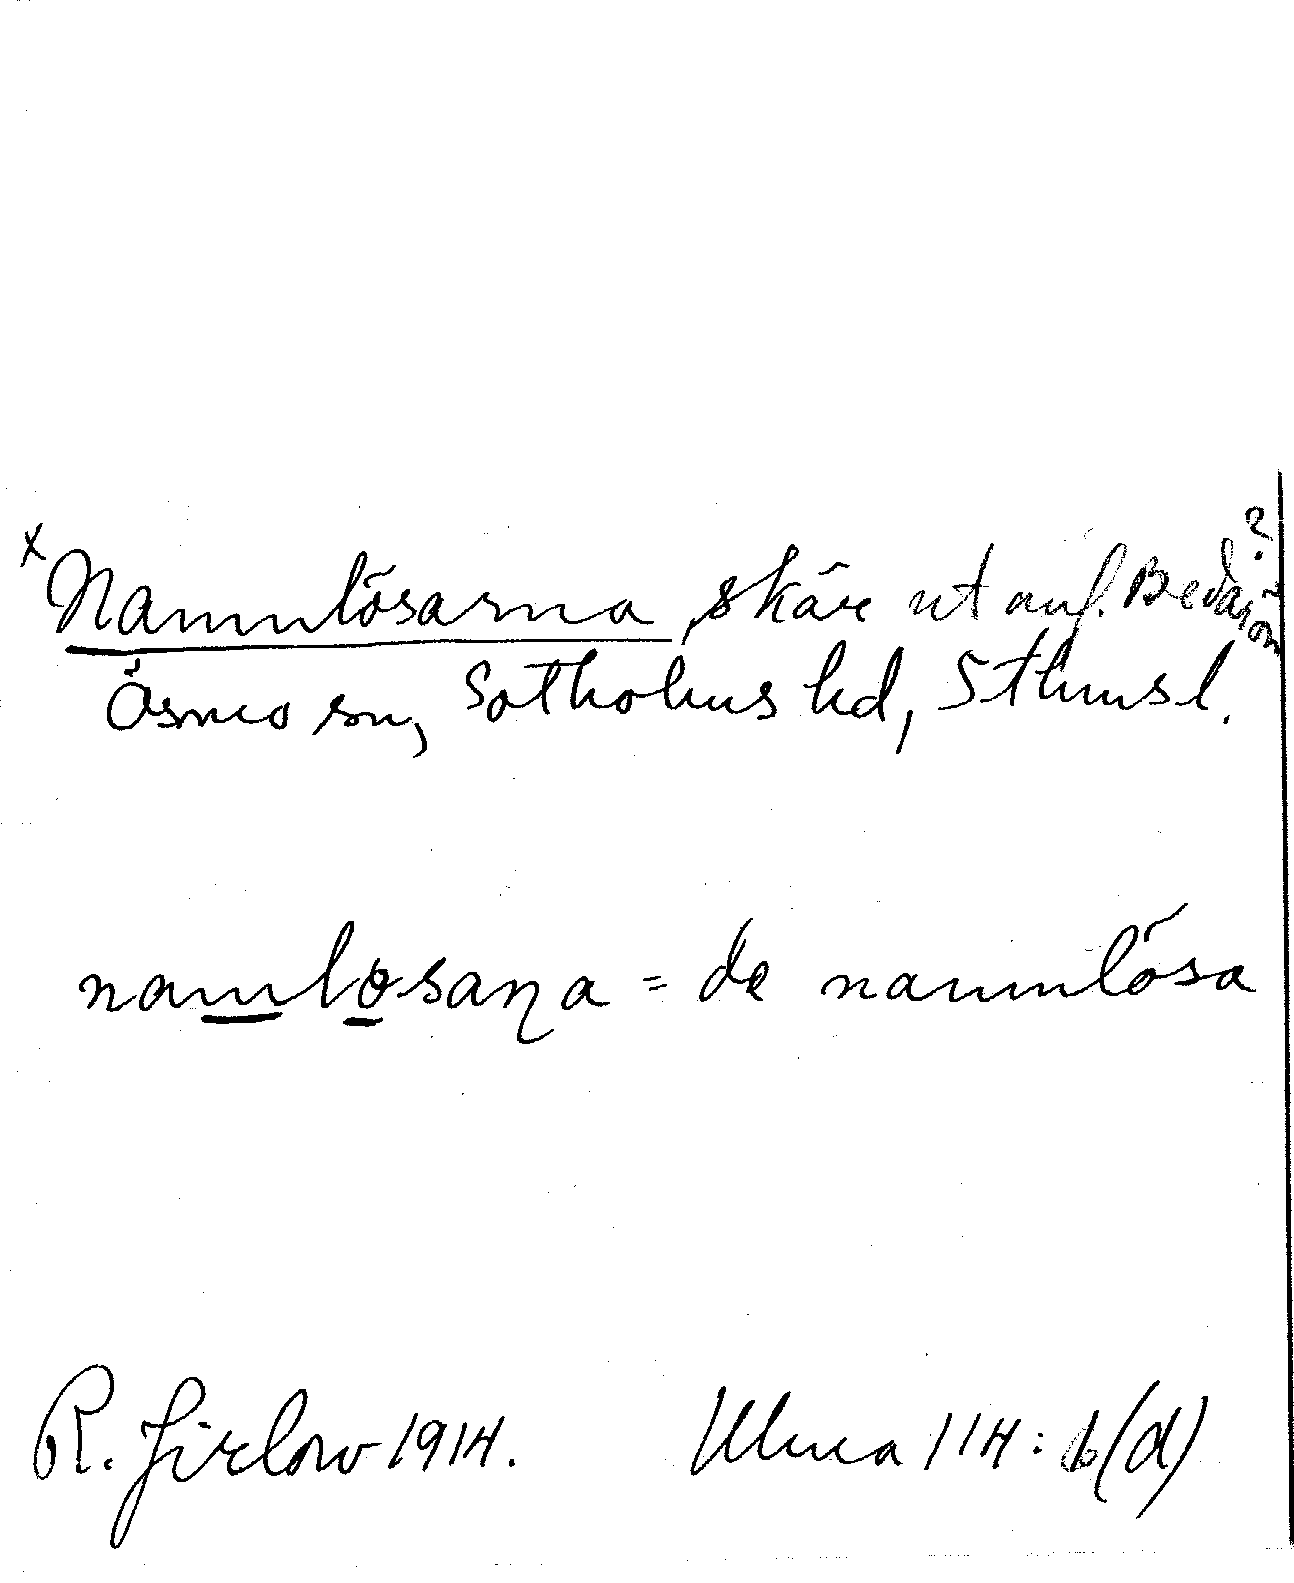 x Namnlösarna, skär ut anf. Bedarön?
Ösmo sn, Sotholms hd, Sthms l.
namlosaꞃa = de namnlösa
R. Jirlow 1914. Ulma 114: b(d)